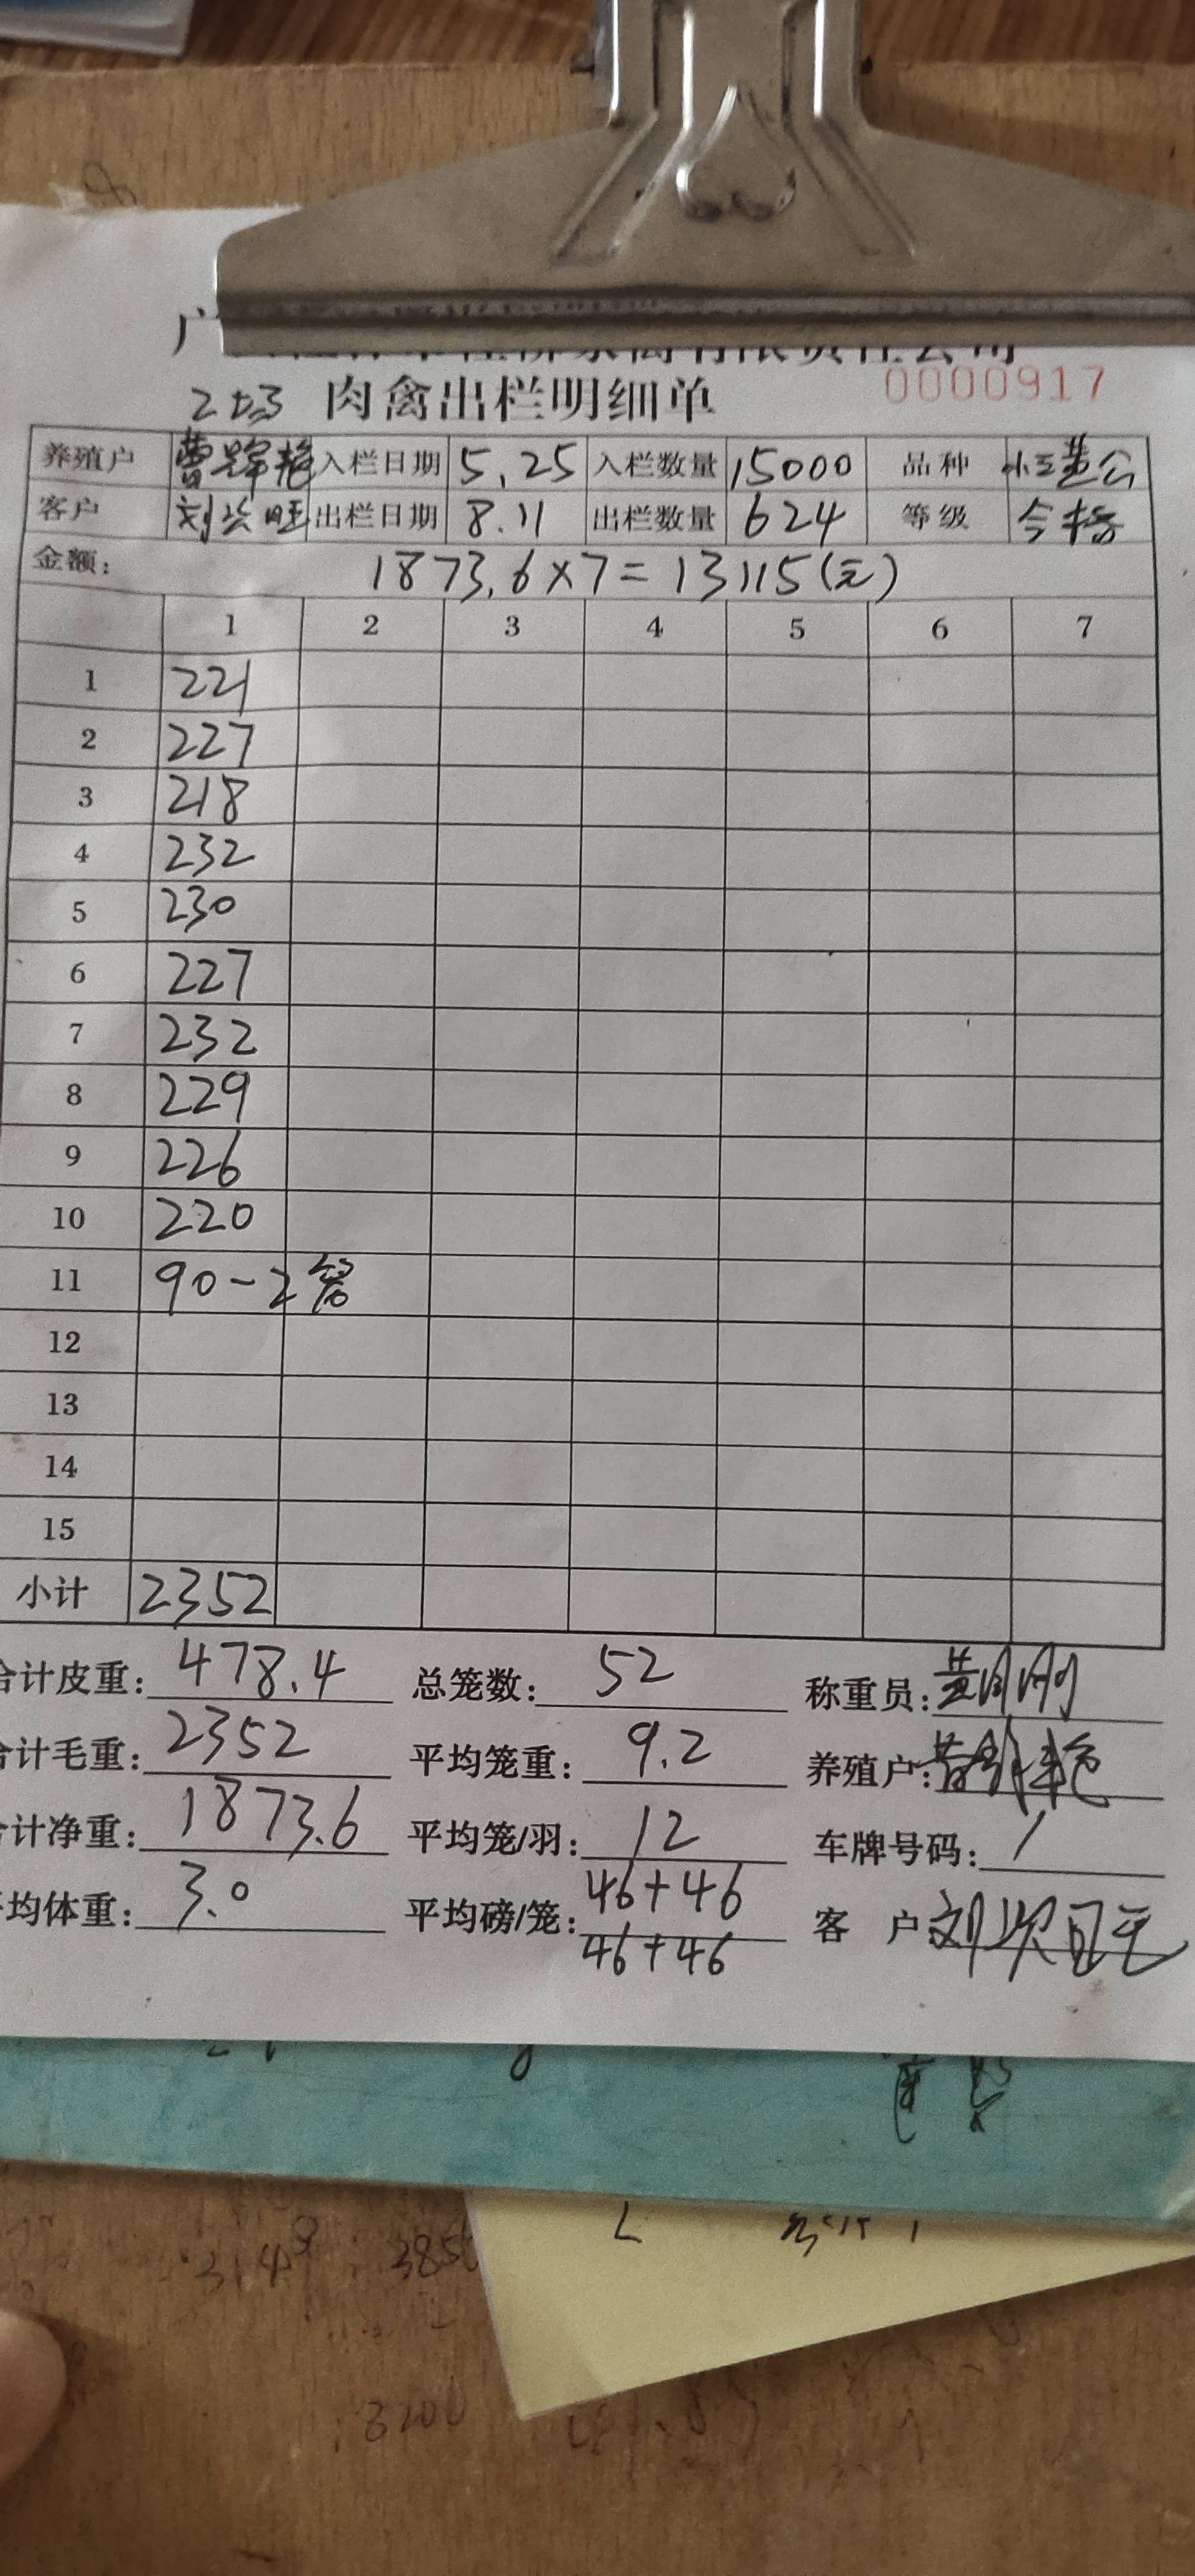 肉禽出栏明细单 0000917
养殖户 入栏日期 5.25 入栏数量 15000 品种
客户 刘次旺 出栏日期 8.11 出栏数量 624 等级 合格
金额: 1873.6×7=13115(元)
1 2 3 4 5 6 7
1 221
2 227
3 218
4 232
5 230
6 227
7 232
8 229
9 226
10 220
11 90-2
12
13
14
15
小计 2352
合计皮重: 478.4 总笼数: 52 称重员:
合计毛重: 2352 平均笼重: 9.2 养殖户:
合计净重: 1873.6 平均笼/羽: 12 车牌号码: /
平均体重: 3.0 平均磅/笼: 46+46
46+46
客 户 刘次旺
3200